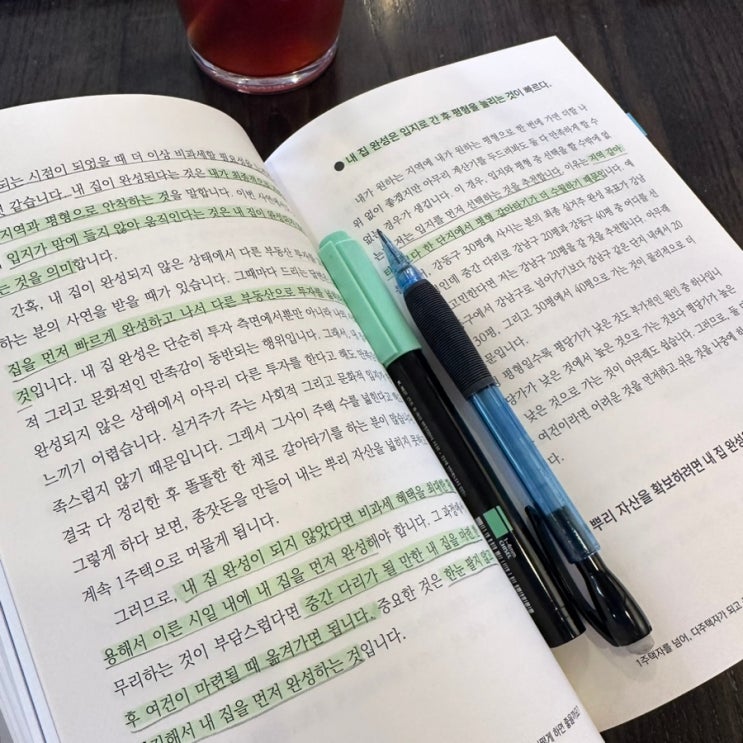 되는 시점이 되었을 때 더 이상 비과세할 필요성을
것 같습니다. 내 집이 완성된다는 것은 내가 최종적으로
지역과 평형으로 안착하는 것을 말합니다. 이번 사연에
입지가 맘에 들지 않아 움직인다는 것은 내 집이
는 것을 의미합니다.
간혹, 내 집이 완성되지 않은 상태에서 다른 부동산
하는 분의 사연을 받을 때가 있습니다. 그때마다 드리는 말씀은
집을 먼저 빠르게 완성하고 나서 다른 부동산으로 투자를
것입니다. 내 집 완성은 단순히 투자 측면에서뿐만 아니라
적 그리고 문화적인 만족감이 동반되는 행위입니다. 그래서, 내
완성되지 않은 상태에서 아무리 다른 투자를 한다고 해도
느끼기 어렵습니다. 실거주가 주는 사회적 그리고 문화적
족스럽지 않기 때문입니다. 그래서 그사이 주택 수를 넓힌다고
결국 다 정리한 후 똘똘한 한 채로 갈아타기를 하는 분이 많습니다.
그렇게 하다 보면, 종잣돈을 만들어 내는 뿌리 자산을 넓히지 못하고
계속 1주택으로 머물게 됩니다.
그러므로, 내 집 완성이 되지 않았다면 비과세 혜택을 최대한
용해서 이른 시일 내에 내 집을 먼저 완성해야 합니다. 그 과정에서
무리하는 것이 부담스럽다면 중간 다리가 될 만한 내 집을 마련한
후 여건이 마련될 때 옮겨가면 됩니다. 중요한 것은 한눈 팔지 않고
해서 내 집을 먼저 완성하는 것입니다.
하면 좋을까?
● 내 집 완성은 입지로 간 후 평형을 늘리는 것이 빠르다.
내가 원하는 지역에 내가 원하는 평형으로 한 번에 가면 더할 나
위 없이 좋겠지만 아무리 계산기를 두드려봐도 둘 다 만족하게 할 수
없는 경우가 생깁니다. 이 경우, 입지와 평형 중 선택을 할 수밖에 없
는데 저는 입지를 먼저 선택하는 것을 추천합니다. 이유는 지역 갈아
다 한 단지에서 평형 갈아타기가 더 수월하기 때문입니다. 예
강동구 30평에 사시는 분의 최종 실거주 완성 목표가 강남
인데 중간 다리로 강남구 20평과 강동구 40평 중 어디를 선
고민한다면 저는 강남구 20평을 갈 것을 추천합니다. 아무래
구에서 강남구로 넘어가기보다 강남구 같은 단지 내에서 20
30평, 그리고 30평에서 40평으로 가는 것이 물리적으로 더
문입니다.
평형일수록 평당가가 낮은 것도 부가적인 원인 중 하나입니
당가가 낮은 것에서 높은 것으로 가는 것보다 평당가가 높은
낮은 것으로 가는 것이 아무래도 쉽습니다. 그러므로, 둘
여건이라면 어려운 것을 먼저하고 쉬운 것을 나중에
다.
뿌리 자산을 확보하려면 내 집 완성
1주택자를 넘어, 다주택자가 되고